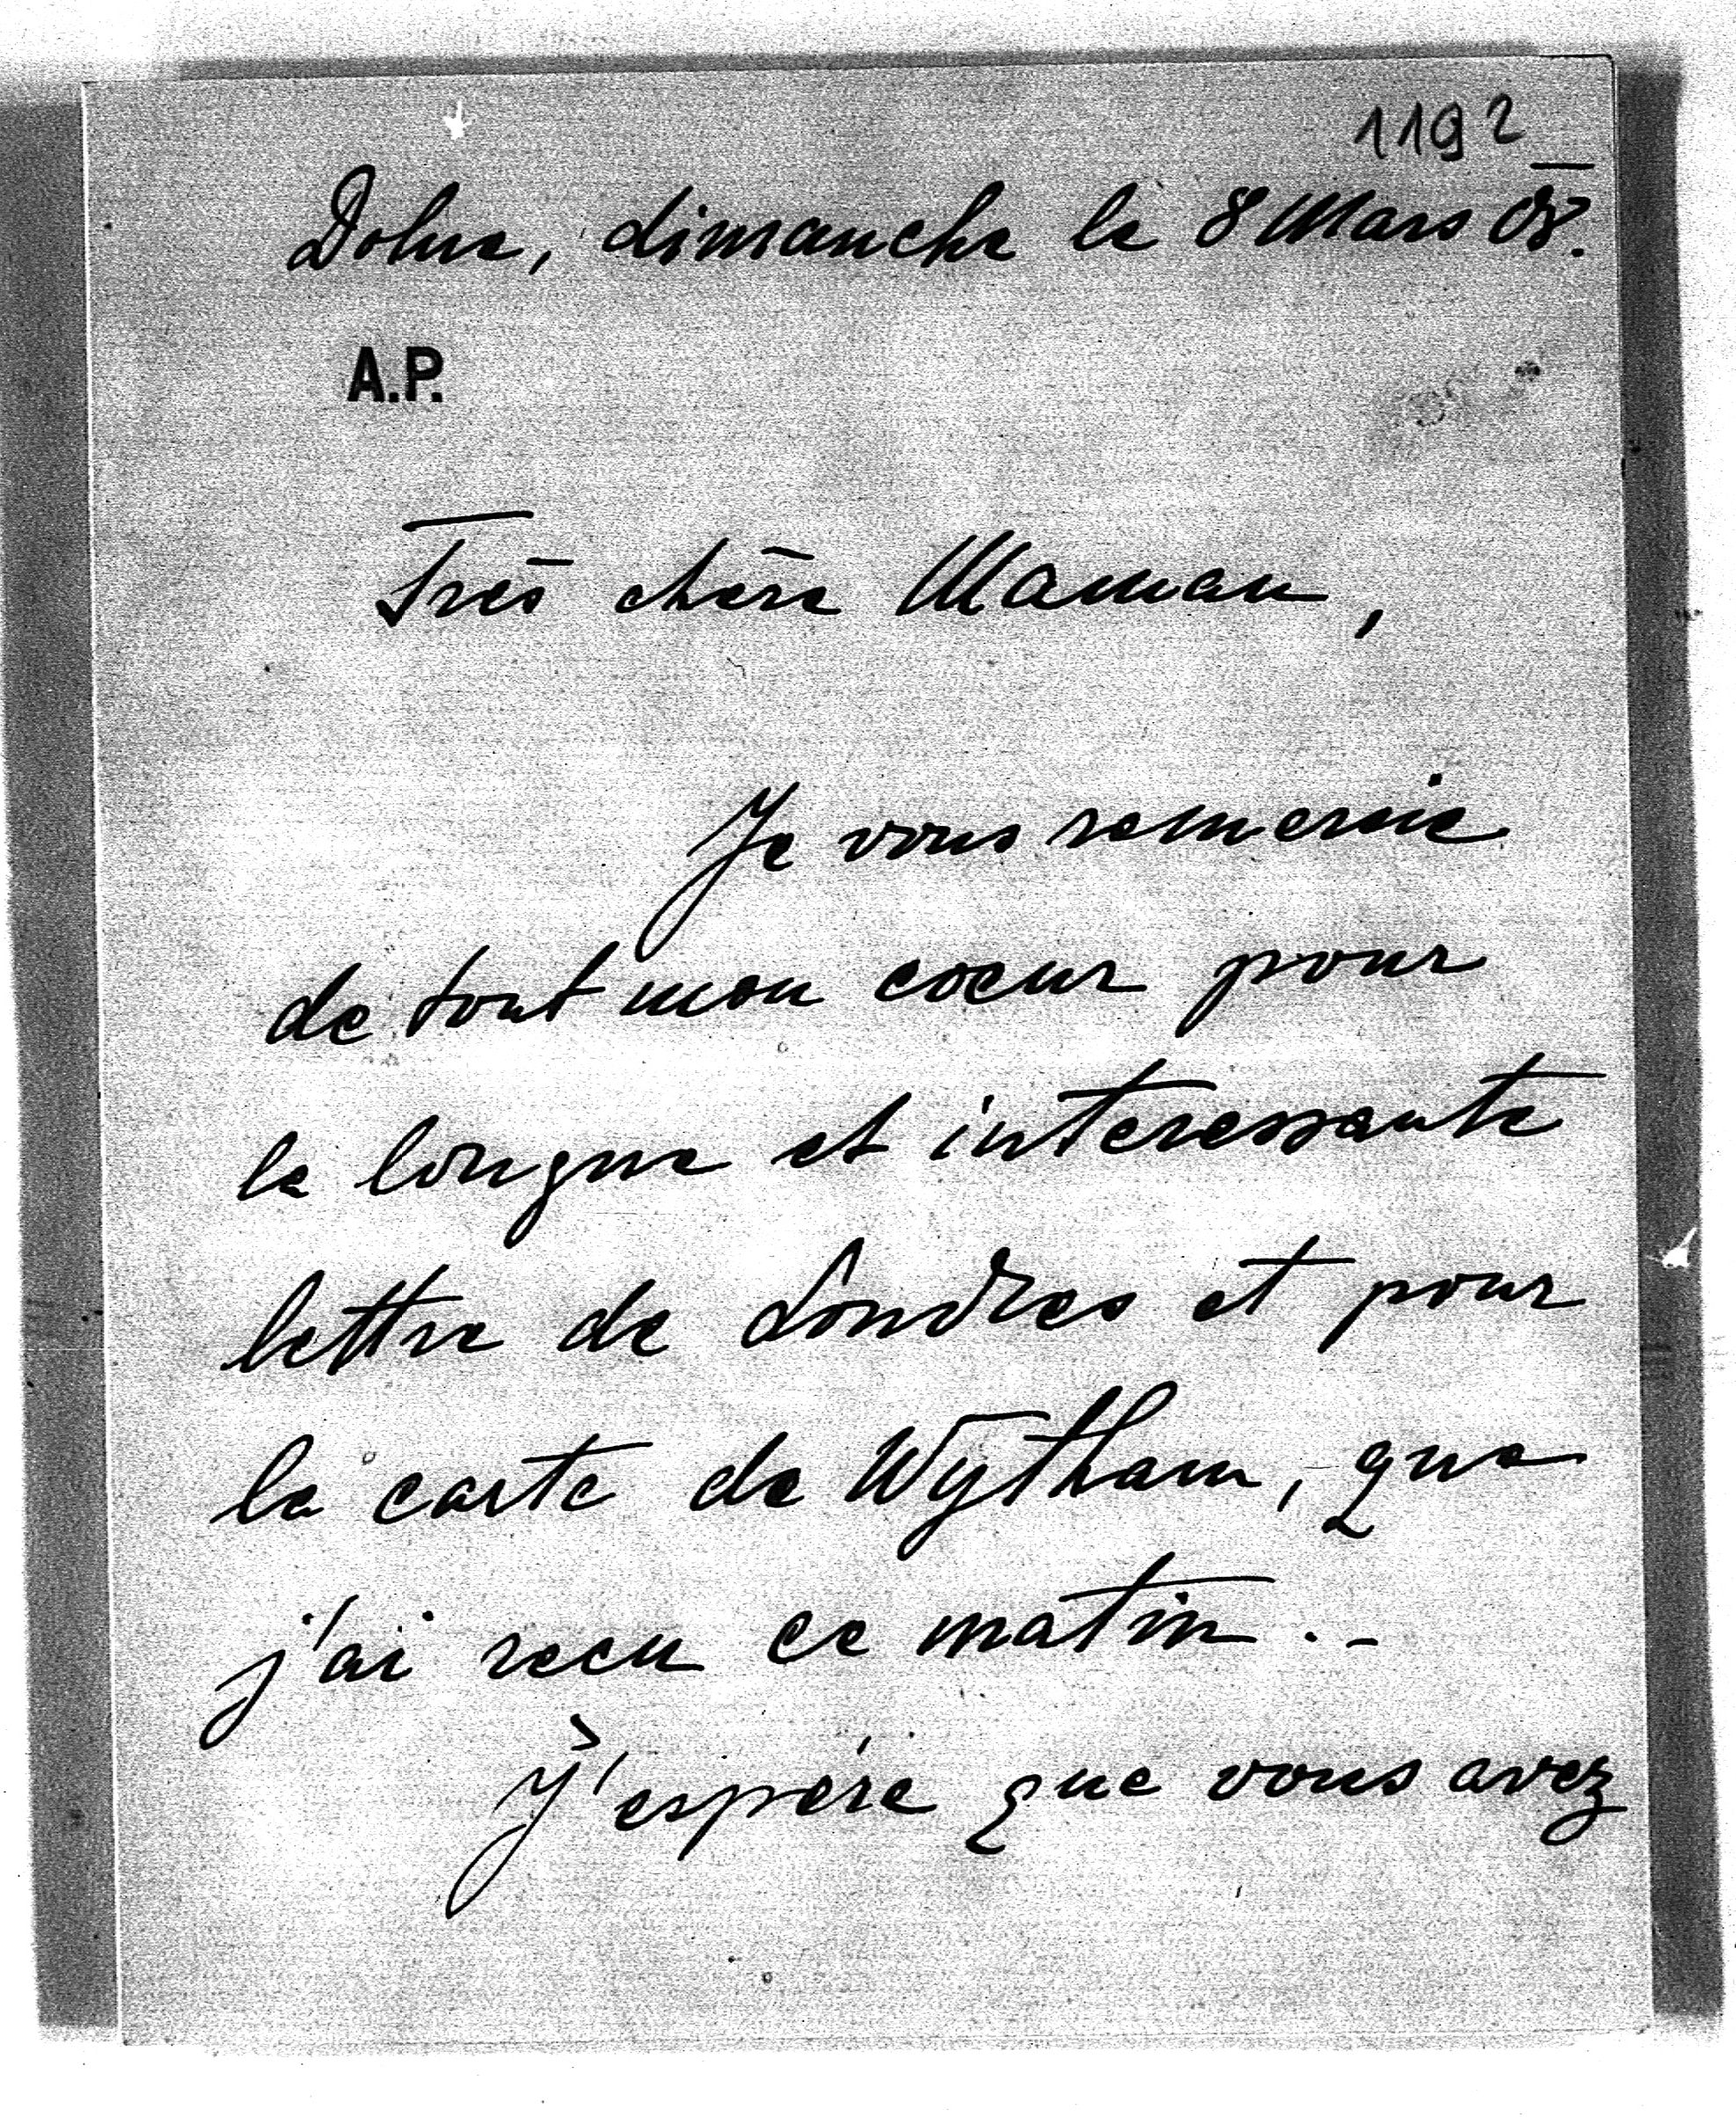 1192
Dolna, dimanche le 8 Mars 08.
A.P.
Très chère Maman,
Je vous remercie
de tout mon coeur pour
la longue et interessante
lettre de Londres et pour
la carte de Wytham, que
j'ai recu ce matin. -
J'espére que vous avez